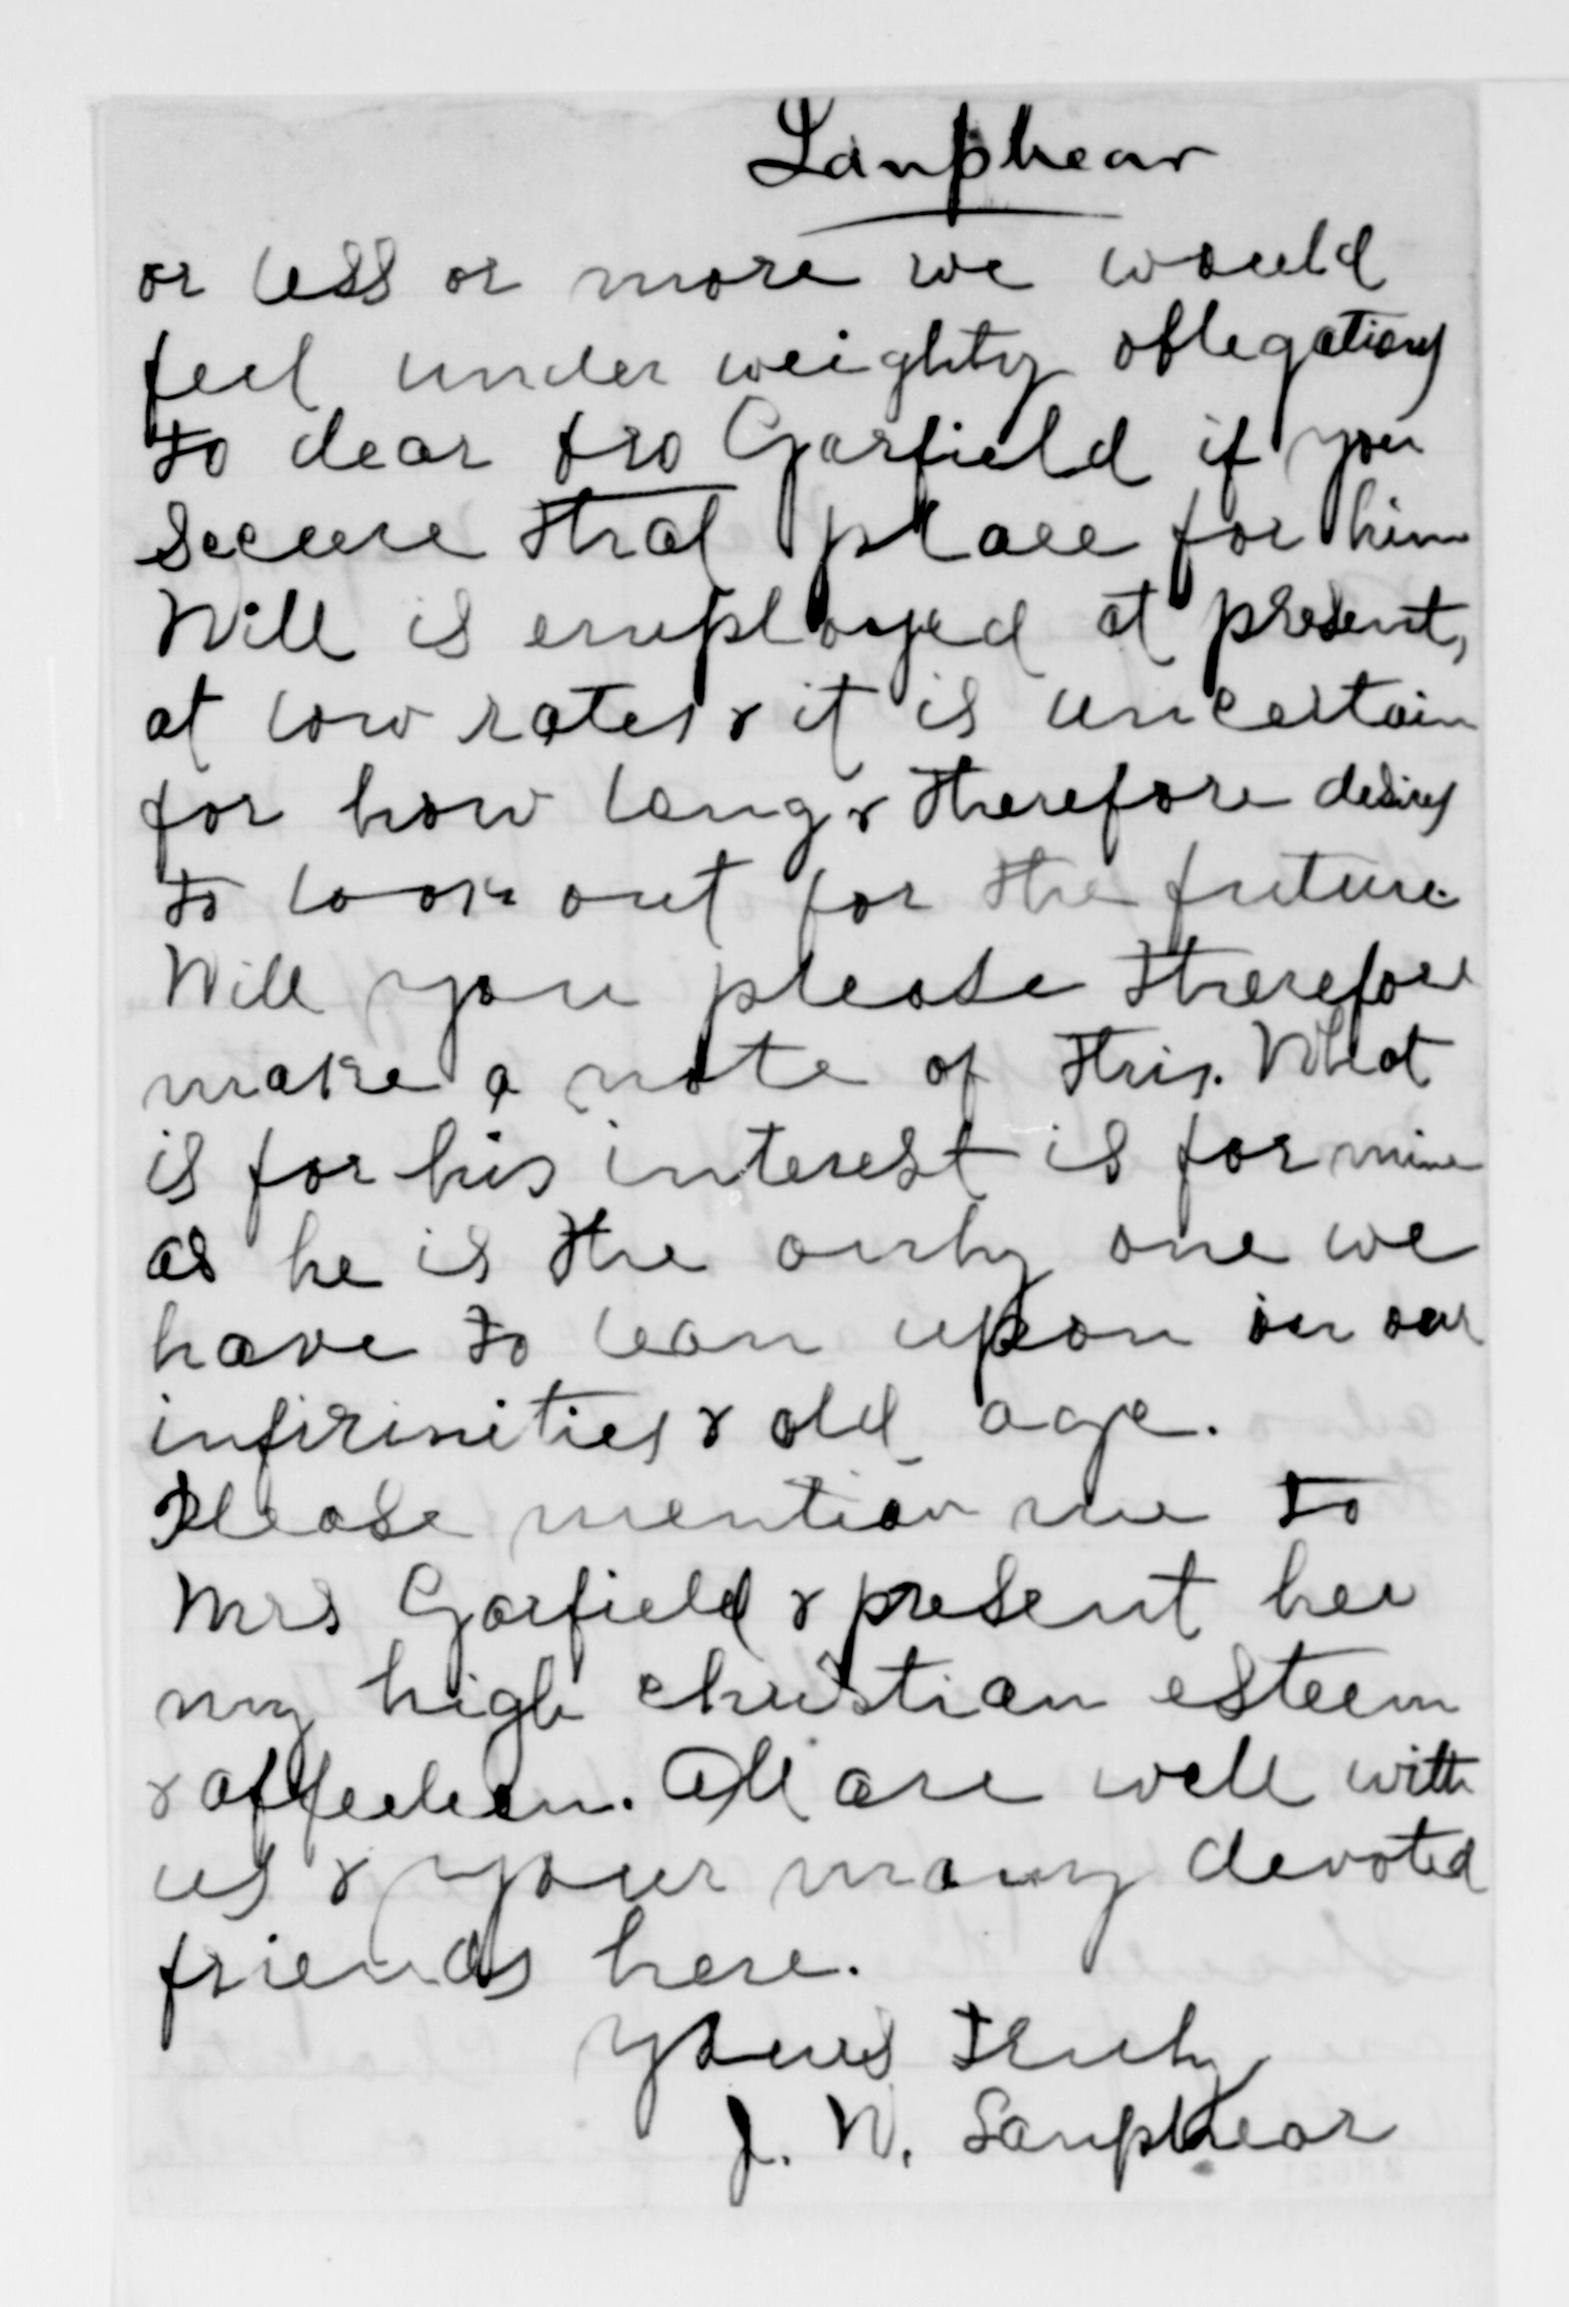 Lanphear
or less or more we would
feel under weighty oblegations
to dear bro Garfield if you
secure that place for him
Will is employed at present,
at low rates & it is uncertain
for how long & therefore desires
to look out for the future.
Will you please therefore
make a note of this. What
is for his interest is for mine
as he is the only one we
have to lean upon in our
infirmities & old age.
Please mention me to
Mrs Garfield & present her
my high christian esteem
& affection. All are well with
us & your many devoted
friends here.
Yours truly
J. W. Lanphear